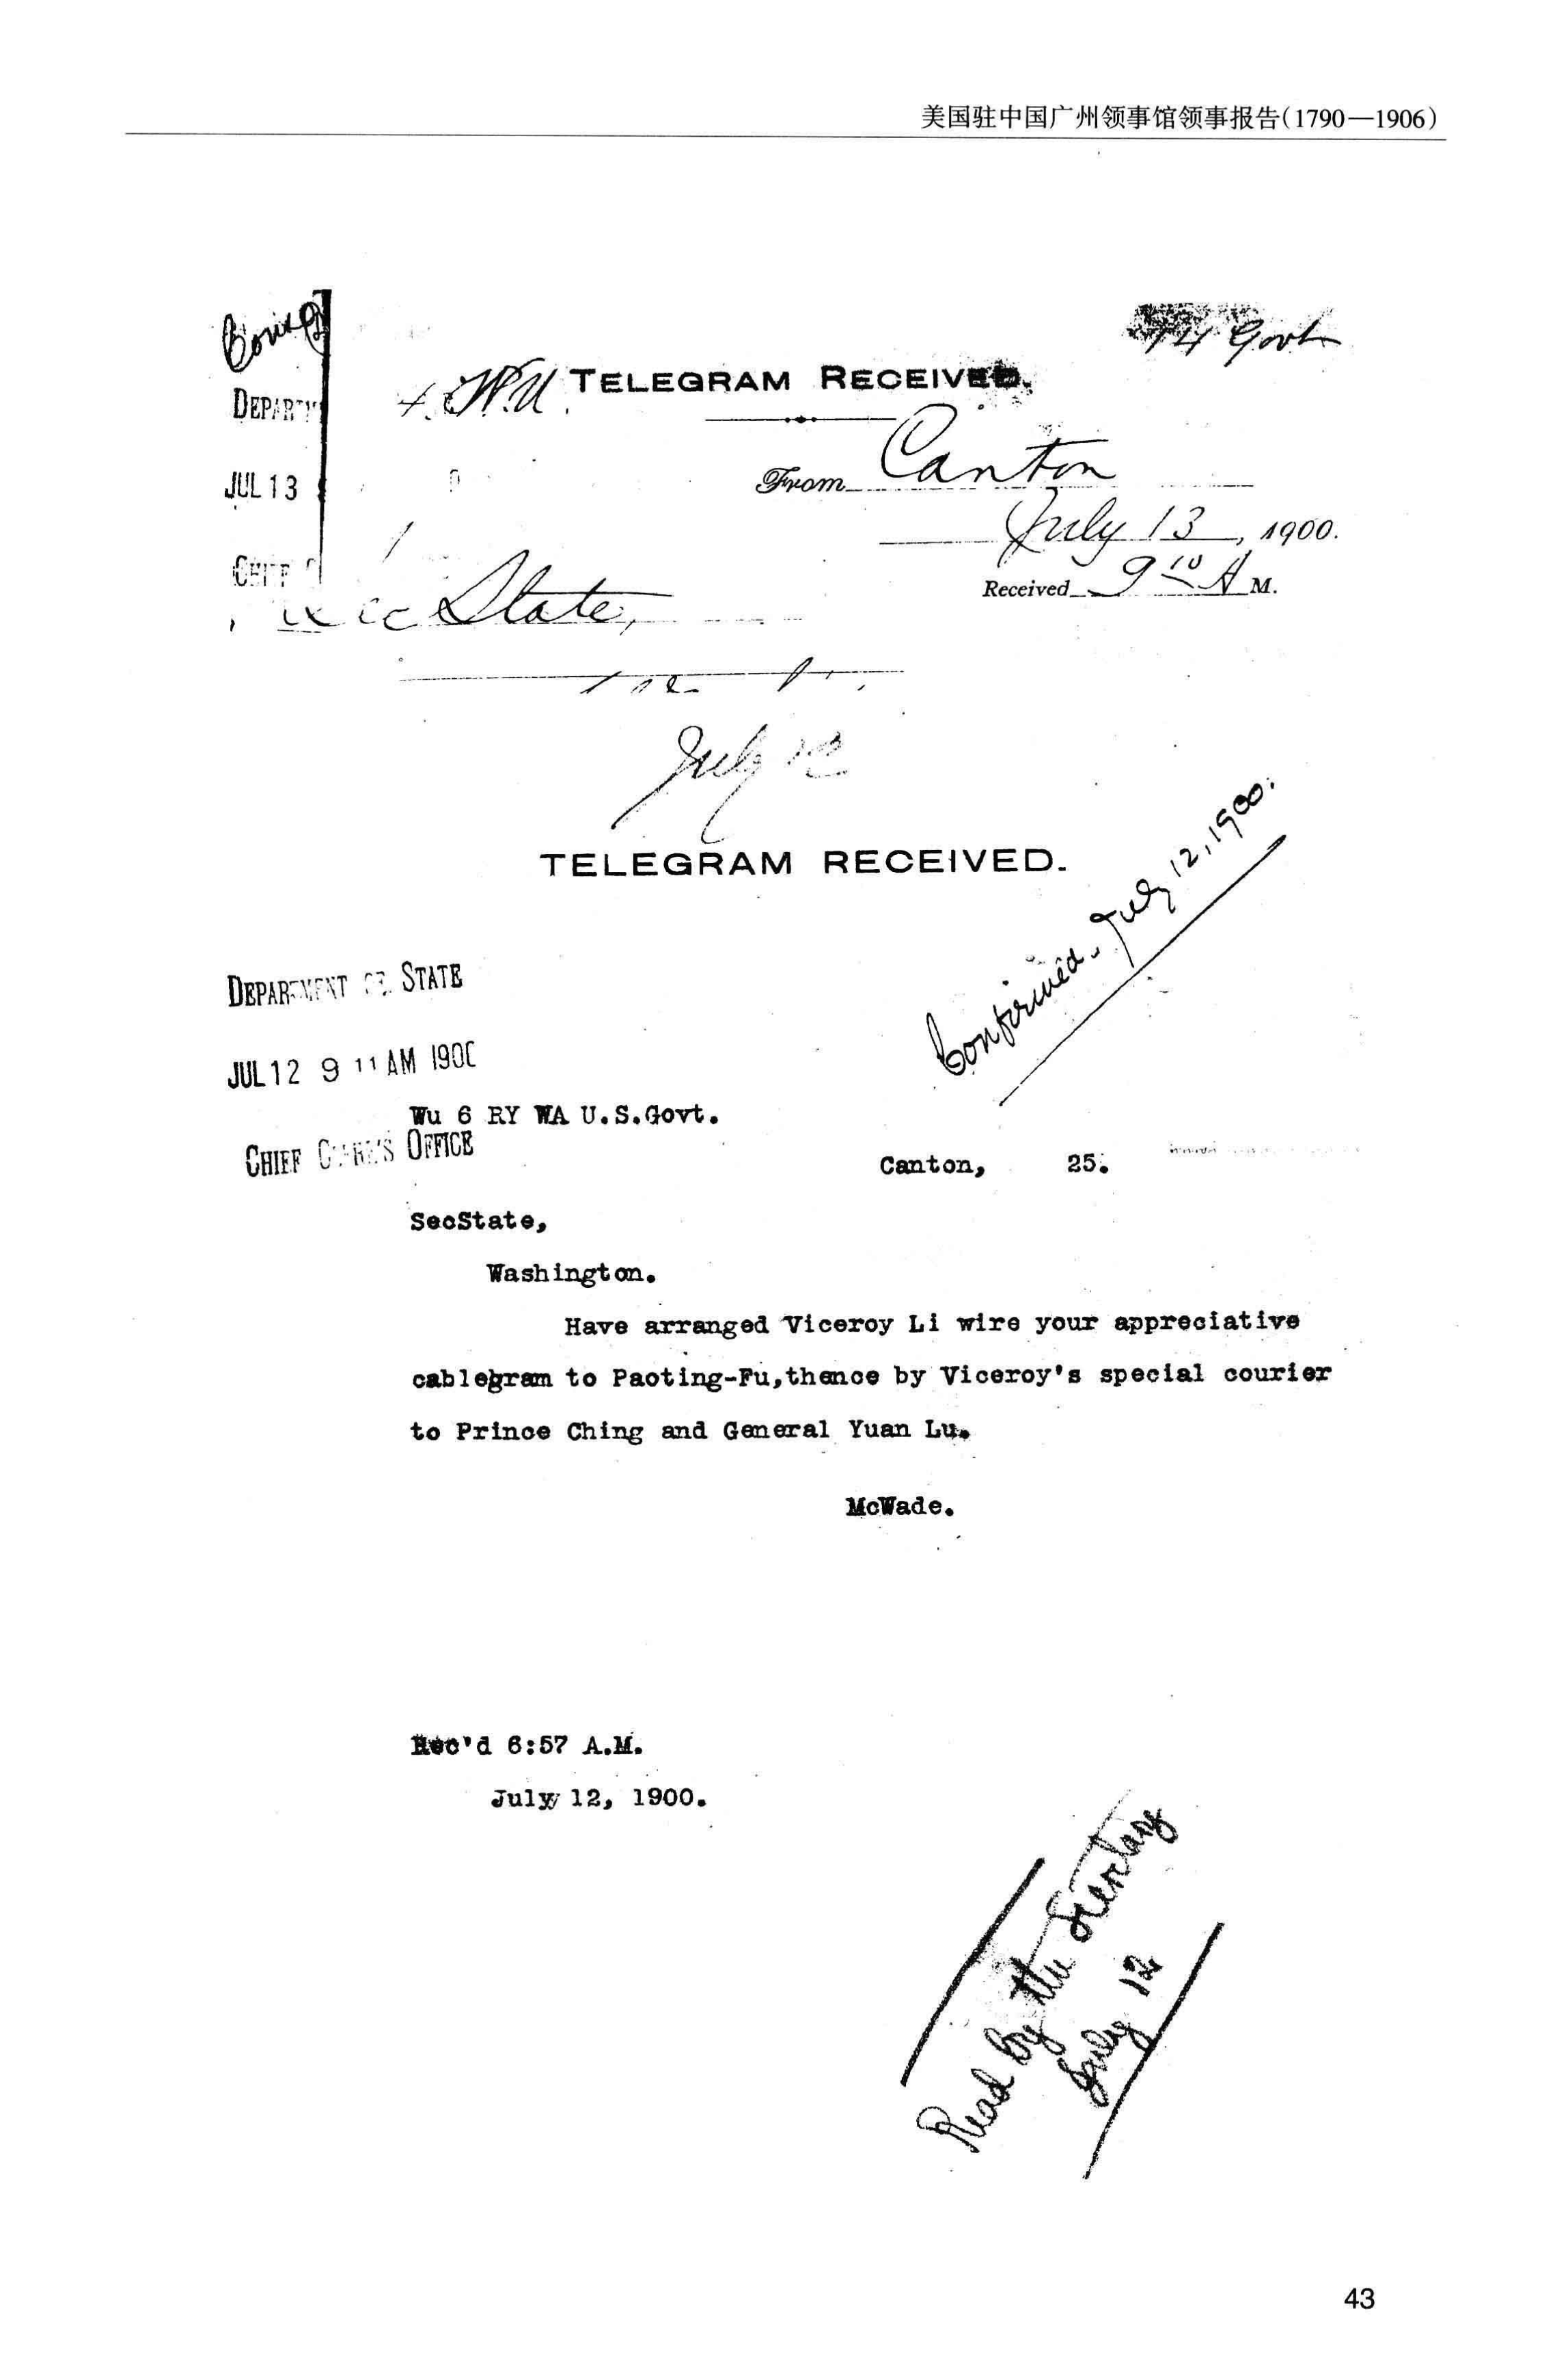 美国驻中国广州领事馆领事报告(1790—1906)
14 Govt
4. W.U. TELEGRAM RECEIVED.
JUL 13
From Canton
July 13, 1900.
Received 9 10 A M.
Sec State,
July 12
TELEGRAM RECEIVED.
Confirmed. July 12, 1900.
DEPARTMENT OF STATE
JUL 12 9 11 AM 1900
Wu 6 RY WA U.S.Govt.
CHIEF CLERK'S OFFICE
Canton, 25.
SecState,
Washington.
Have arranged Viceroy Li wire your appreciative
cablegram to Paoting-Fu,thence by Viceroy's special courier
to Prince Ching and General Yuan Lu.
McWade.
Rec'd 6:57 A.M.
July 12, 1900.
Read by the Secretary
July 12
43